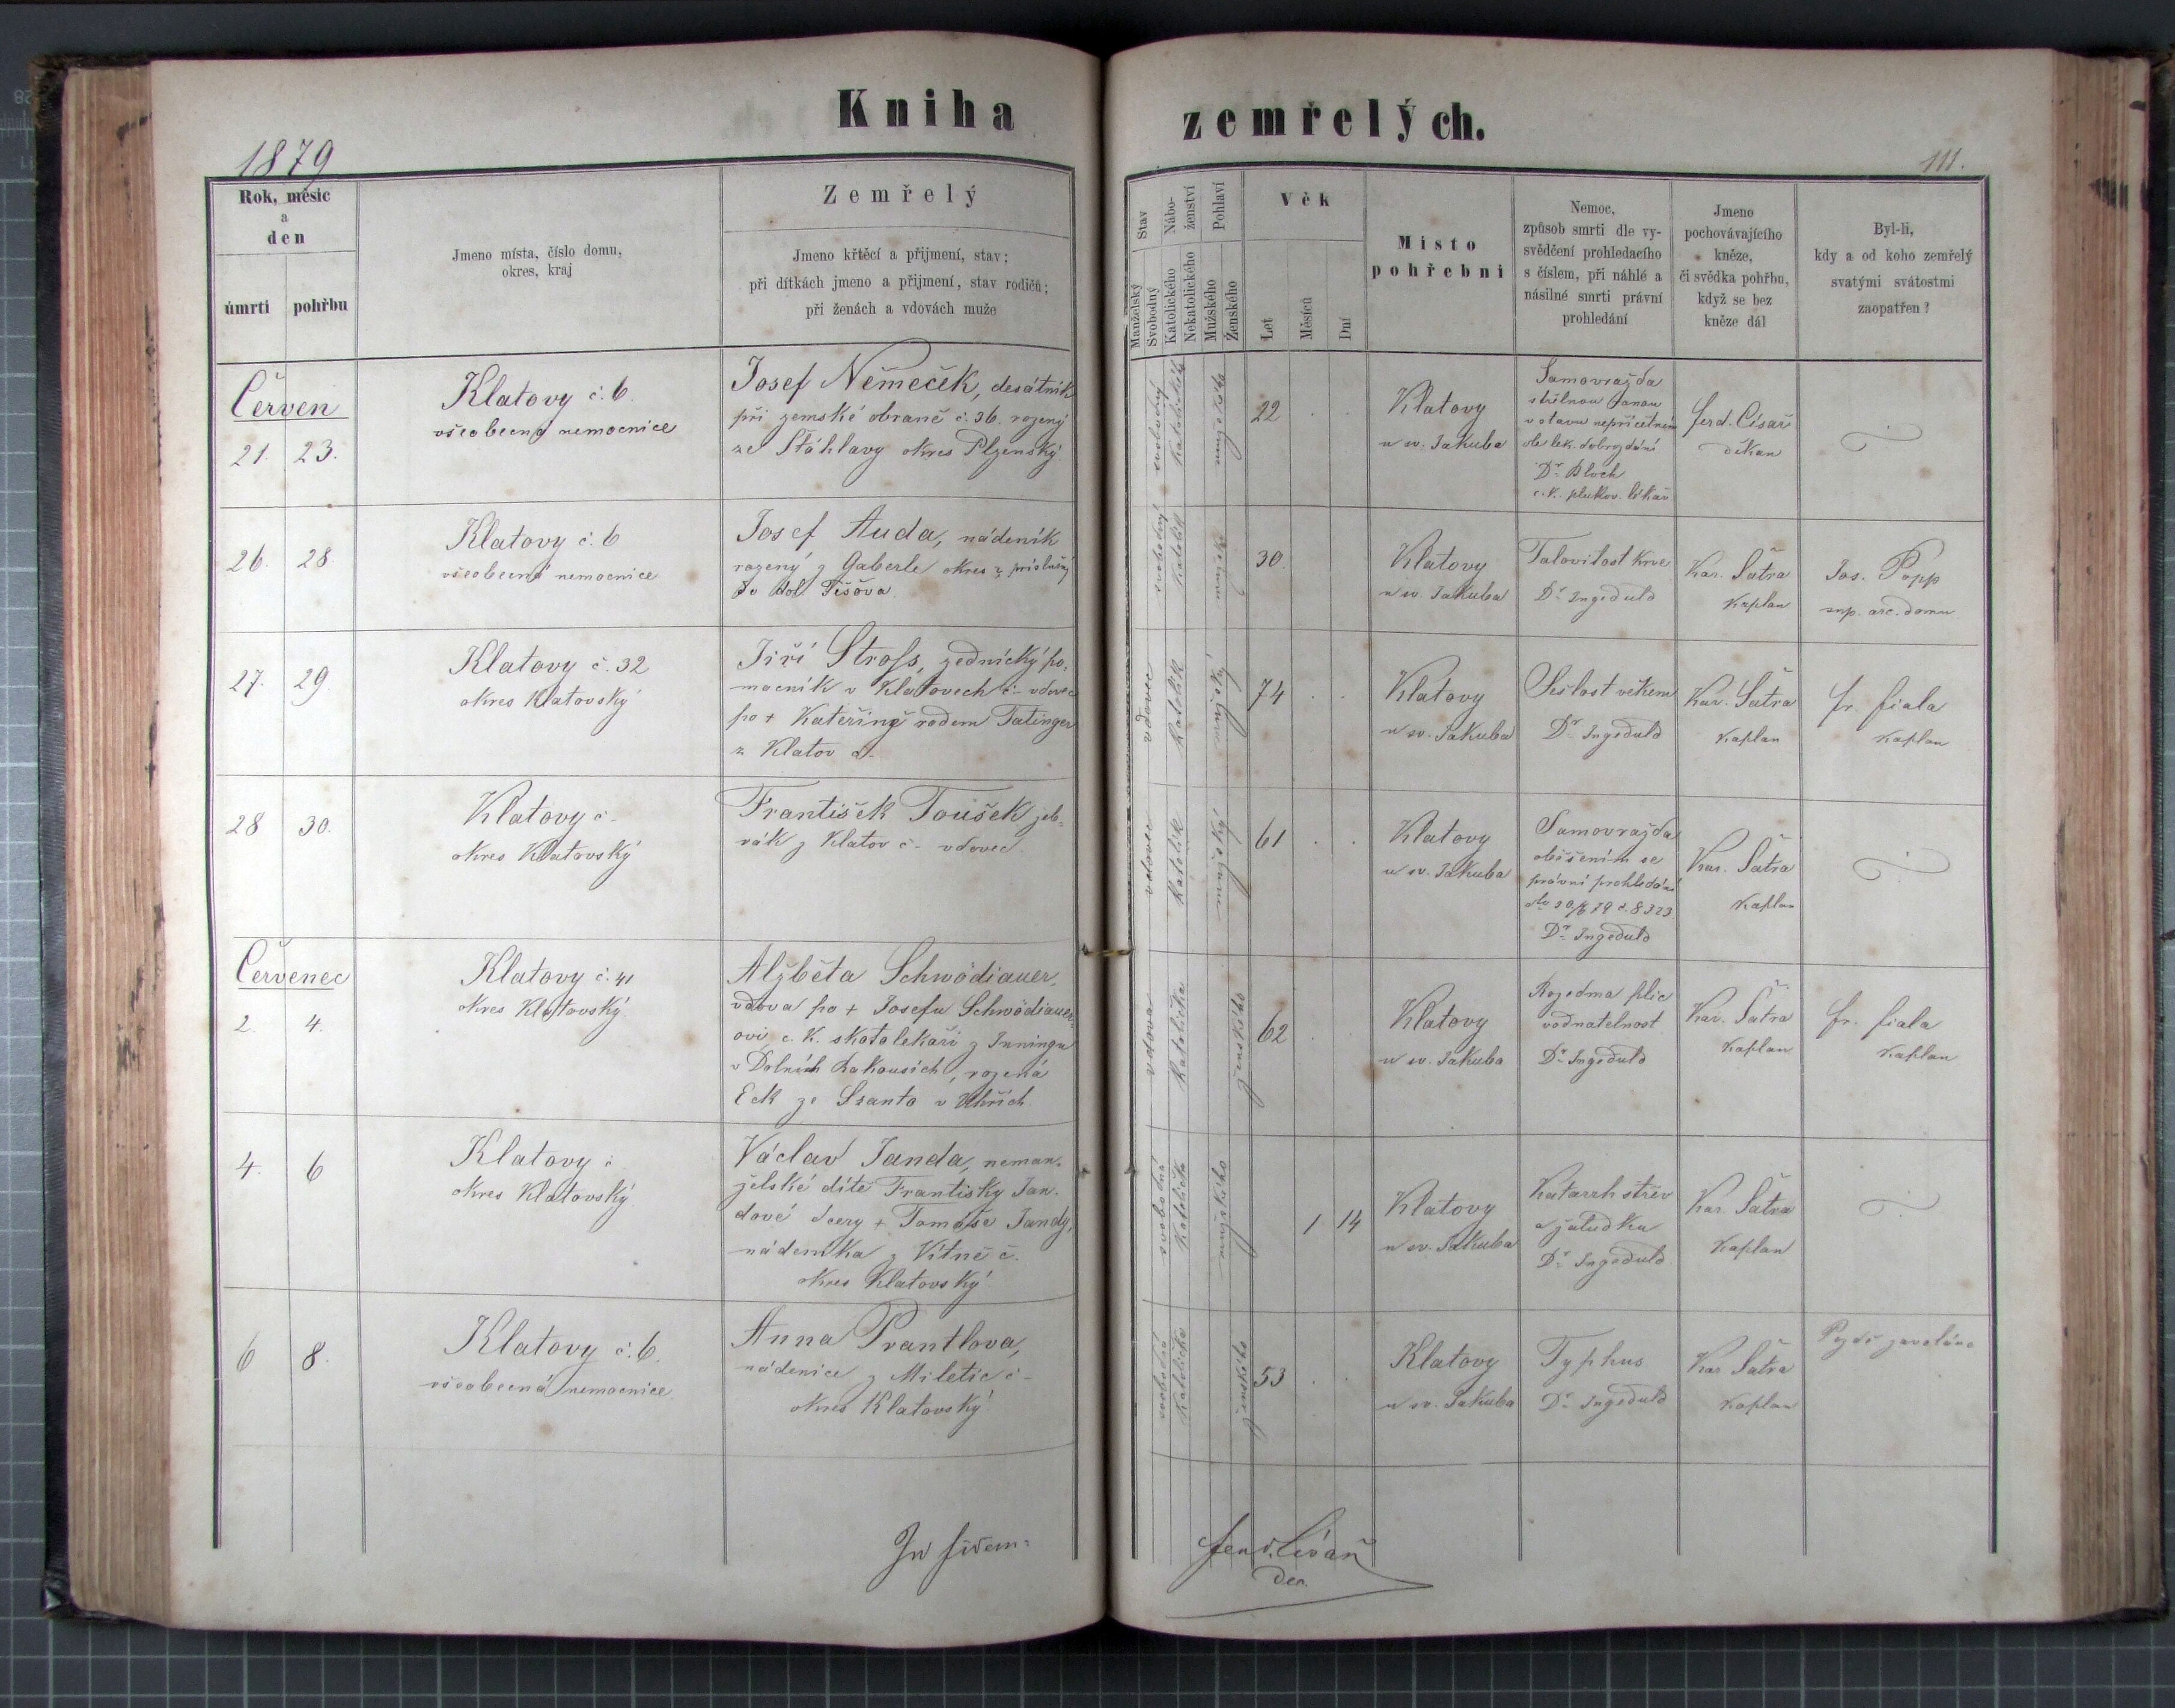 Kniha zemřelých.
1879
111.
Rok, měsíc
a
den
úmrtí
pohřbu
Jmeno místa, číslo domu,
okres, kraj
Zemřelý
Jmeno křtěcí a přijmení, stav;
při dítkách jmeno a přijmení, stav rodičů;
při ženách a vdovách muže
Stav
Manželský
Svobodný
Nábo-
ženství
Katolického
Nekatolického
Pohlaví
Mužského
Ženského
Věk
Let
Měsíců
Dní
Místo
pohřební
Nemoc,
způsob smrti dle vy-
svědčení prohledacího
s číslem, při náhlé a
násilné smrti právní
prohledání
Jmeno
pochovávajícího
kněze,
či svědka pohřbu,
když se bez
kněze dál
Byl-li,
kdy a od koho zemřelý
svatými svátostmi
zaopatřen?
Červen
21. 23.
Klatovy č. 6.
všeobecná nemocnice
Josef Němeček, desátník
při zemské obraně č. 36. rozený
ze Stáhlavy okres Plzenský.
svobodný
katolického
mužského
22
Klatovy
u sv. Jakuba
Samovražda
střelnou ranou
v stavu nepříčetném
dle lek. dobrozdání
Dr. Bloch
c. k. plukov. lékař
Ferd. Císař
děkan
26. 28.
Klatovy č. 6
všeobecná nemocnice
Josef Auda, nádeník
rozený z Gaberle okres příslušný
do dol Těšova.
svobodný
katolík
mužský
30.
Klatovy
u sv. Jakuba
Talovitost krve
Dr. Ingeduld
Kar. Šatra
kaplan
Jos. Popp
sup. arc. domu
27. 29.
Klatovy č. 32
okres Klatovský
Jiří Stross, zednický po-
mocník v Klatovech č - vdovec
po + Kateřině rodem Tatinger
z Klatov č.
vdovec
katolík
mužský
74
Klatovy
u sv. Jakuba
Sešlost věkem
Dr. Ingeduld
Kar. Šatra
kaplan
Fr. Fiala
kaplan
28 30.
Klatovy č -
okres Klatovský
František Toušek žeb-
rák z Klatov č - vdovec
vdovec
katolík
mužský
61
Klatovy
u sv. Jakuba
Samovražda
oběšením se
právní prohledání
dto 30/6 79 č. 8323
Dr. Ingeduld
Kar. Šatra
kaplan
Červenec
2. 4.
Klatovy č. 41
okres Klatovský
Alžběta Schwödiauer,
vdova po + Josefu Schwödiauer-
ovi c. k. skotolékaři z Inningu
v Dolních Rakousích, rozená
Eck ze Szanto v Uhřích
vdova
katolička
ženského
62
Klatovy
u sv. Jakuba
Rozedma plic
vodnatelnost
Dr. Ingeduld
Kar. Šatra
kaplan
Fr. Fiala
kaplan
4. 6
Klatovy č
okres Klatovský
Václav Janda, neman-
želské dítě Františky Jan-
dové dcery + Tomáše Jandy,
nádeníka z Vítně č.
okres Klatovský.
mužského
1 14
Klatovy
u sv. Jakuba
Katarrh střev
a žaludka
Dr. Ingeduld
Kar. Šatra
kaplan
6 8.
Klatovy č. 6.
všeobecná nemocnice
Anna Prantlova,
nádenice z Miletic č -
okres Klatovský
svobodná
katolička
ženského
53
Klatovy
u sv. Jakuba
Typhus
Dr. Ingeduld
Kar. Šatra
kaplan
Pozdě zavoláno
In fidem:
Ferd. Císař
děk.